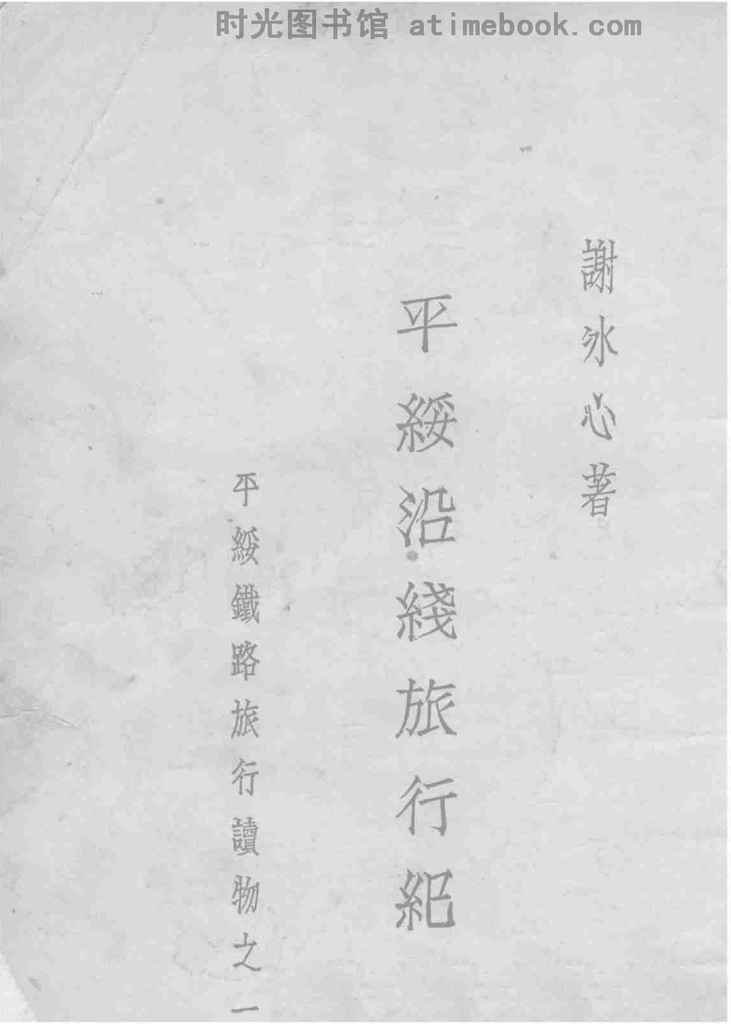 时光图书馆 atimebook.com
謝冰心著
平綏沿綫旅行紀
平綏鐵路旅行讀物之一